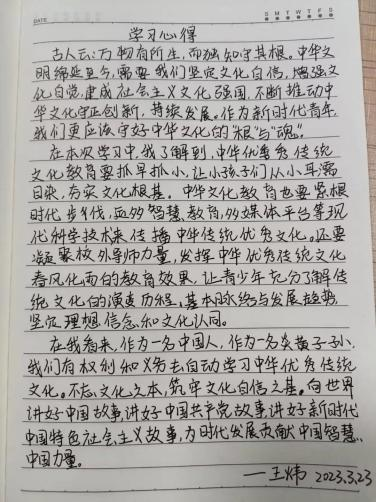 DATE
S M T W T F S
学习心得
古人云:万物有所生,而独知守其根。中华文
明绵延至今,需要我们坚定文化自信,增强文
化自觉,建成社会主义文化强国,不断推动中
华文化守正创新,持续发展。作为新时代青年,
我们更应该守好中华文化的“根”与“魂”。
在本次学习中,我了解到,中华优秀传统
文化教育要抓早抓小,让小孩子们从小耳濡
目染,夯实文化根基。中华文化教育也要紧跟
时代步伐,应以智慧教育,以媒体平台等现
代科学技术来传播中华传统优秀文化。还要
凝聚校外导师力量,发挥中华优秀传统文化
春风化雨的教育效果,让青少年充分了解传
统文化的演进历程、基本脉络与发展趋势,
坚定理想信念和文化认同。
在我看来,作为一名中国人,作为一名炎黄子孙,
我们有权利和义务去自动学习中华优秀传统
文化。不忘文化之本,筑守文化自信之基。向世界
讲好中国故事,讲好中国共产党故事,讲好新时代
中国特色社会主义故事,为时代发展贡献中国智慧、
中国力量。
——王炜 2023.3.23